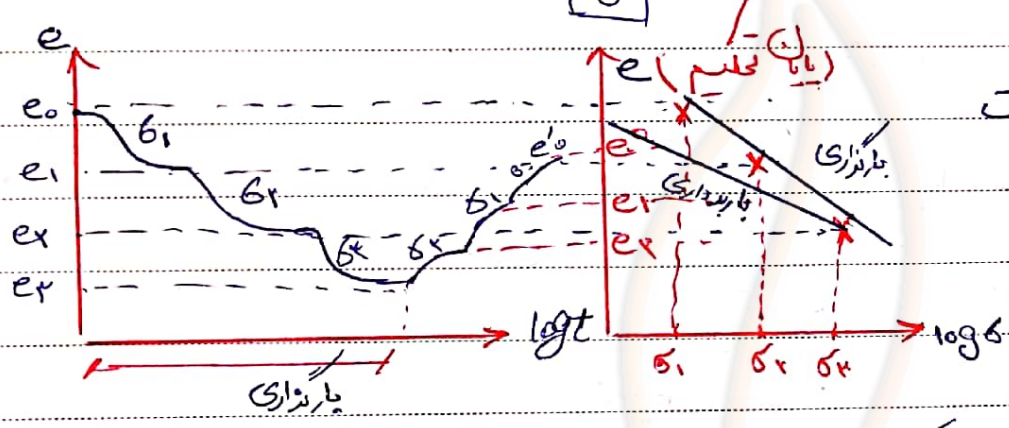 e
e₀
e₁
e₂
e₃
σ₁
σ₂
σ₃
σ₂
σ₁
e'₀
log t
بارگذاری
e (پایان تحکیم)
e₀
e₁
e₂
بارگذاری
باربرداری
σ₁ σ₂ σ₃
log σ